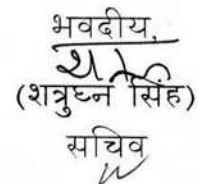 भवदीय,
(शत्रुघ्न सिंह)
सचिव